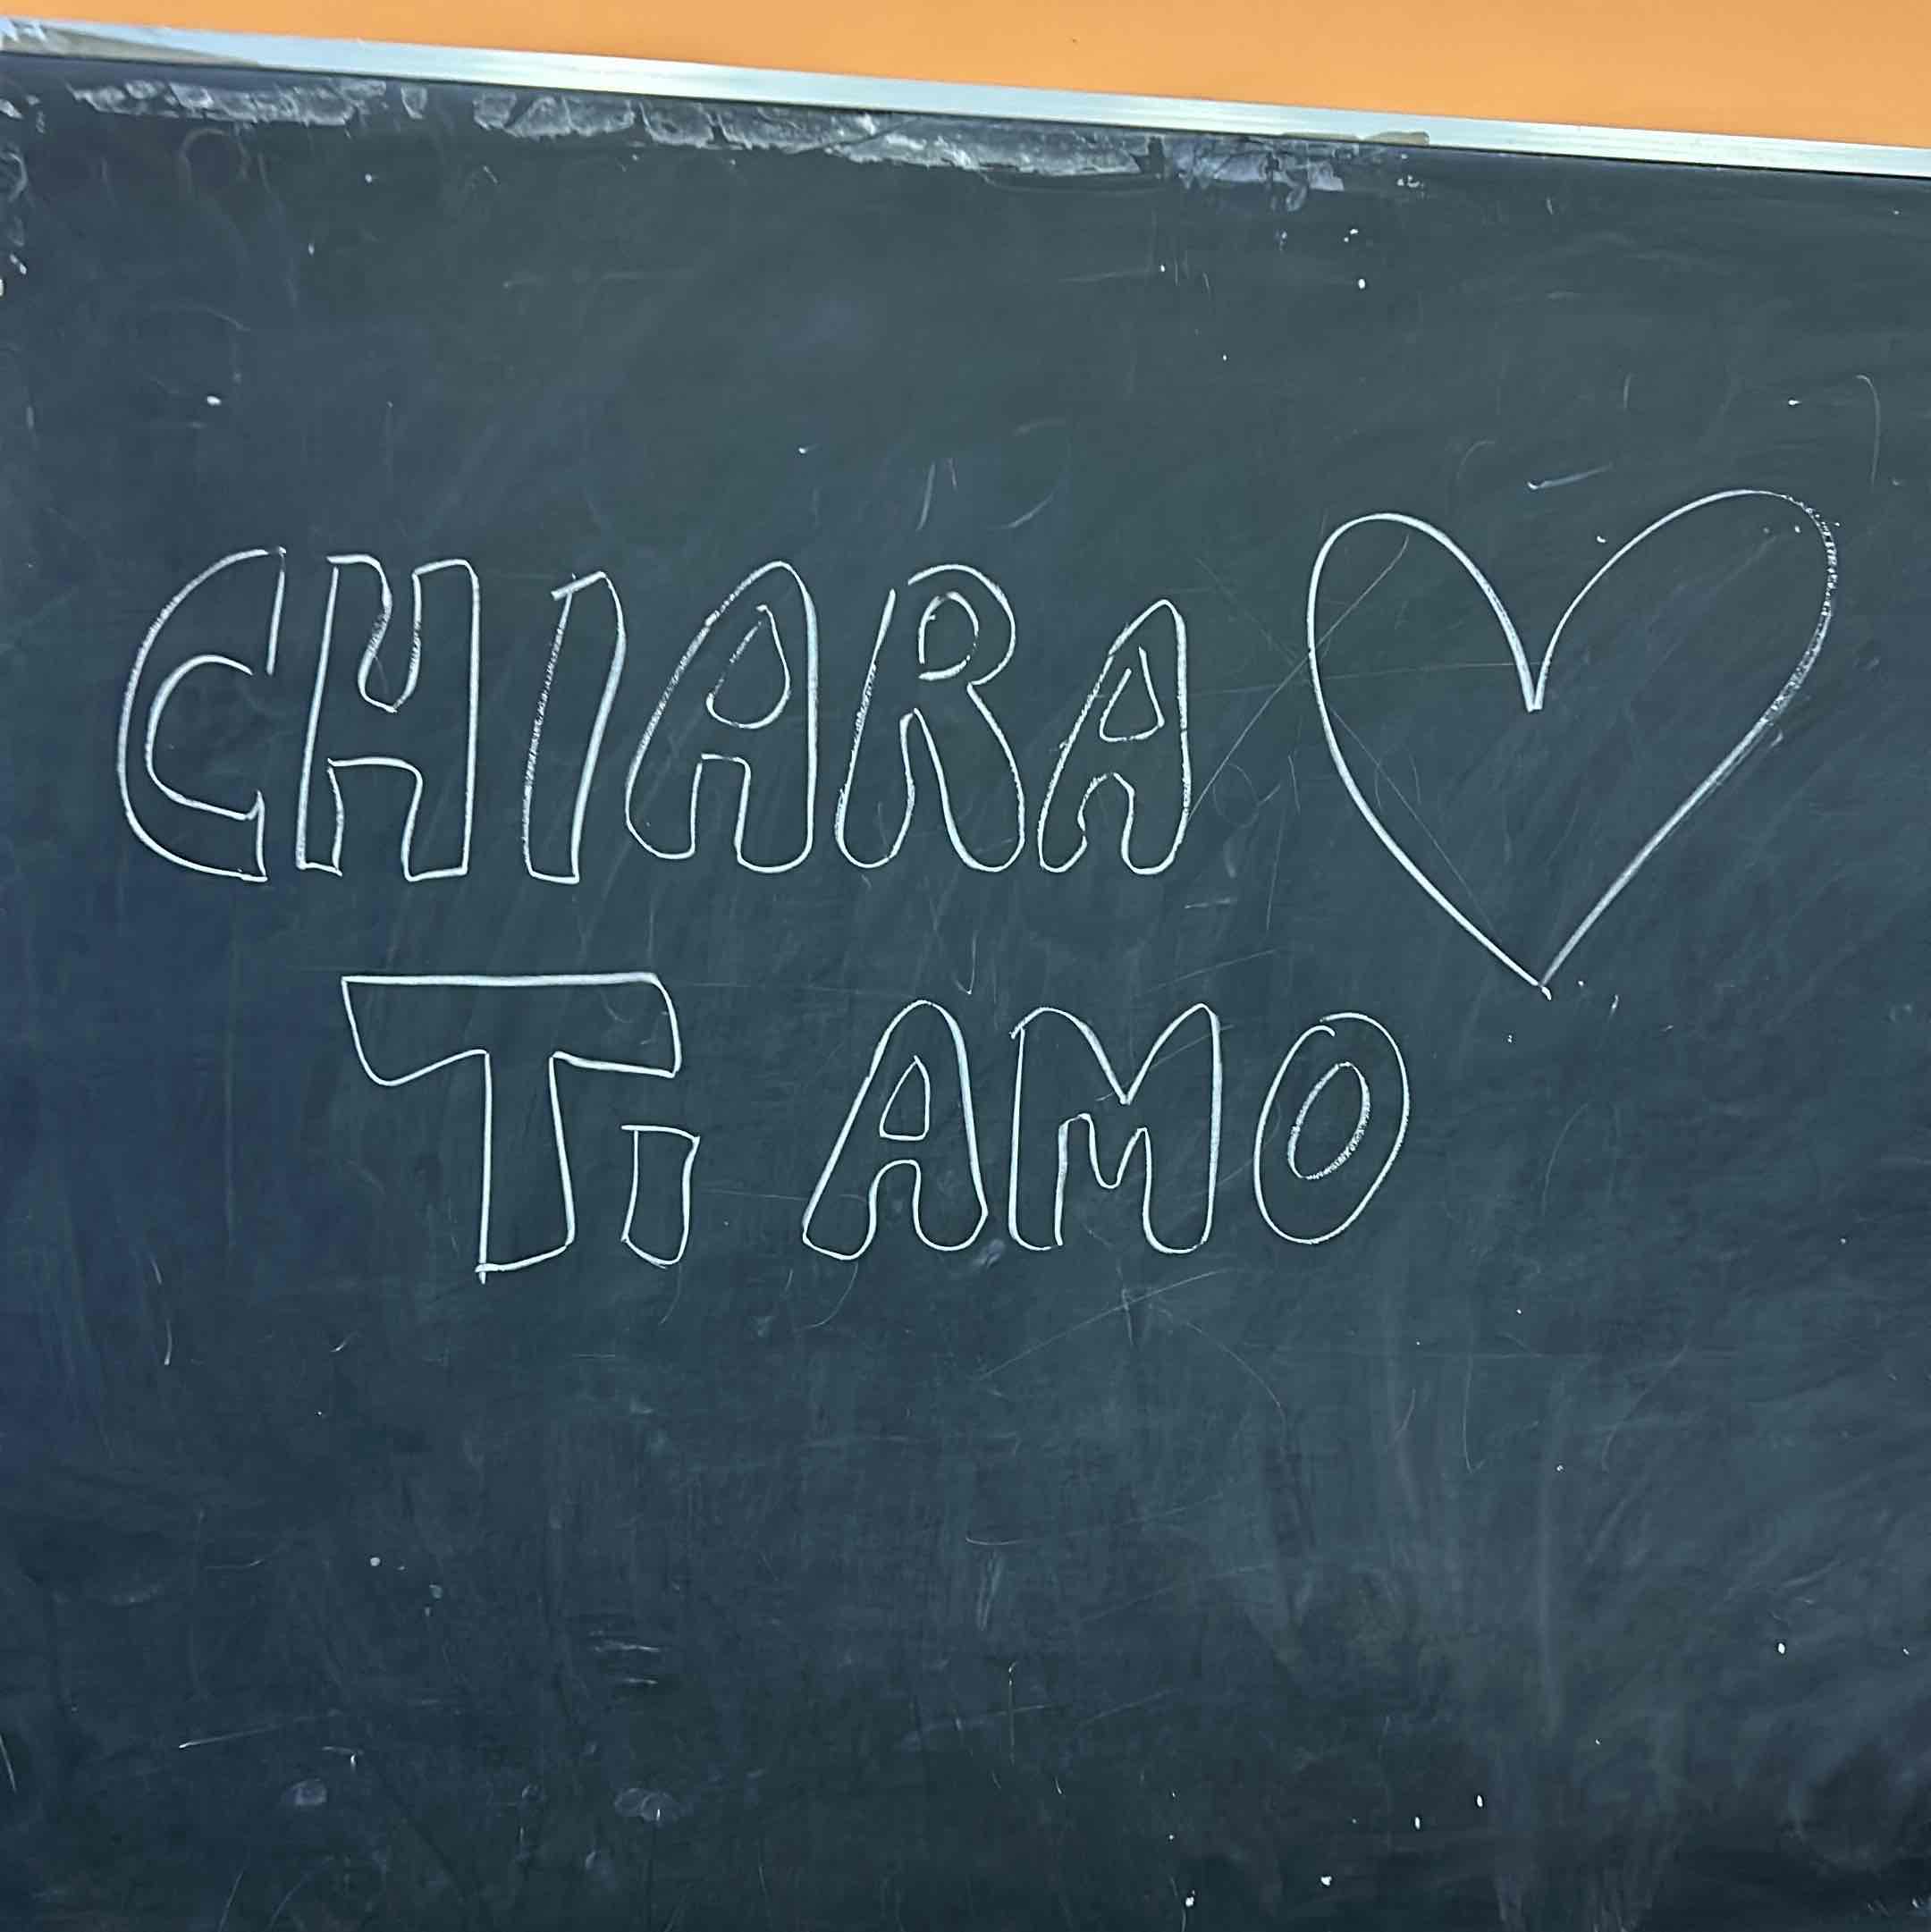 CHIARA ♡
Ti AMO